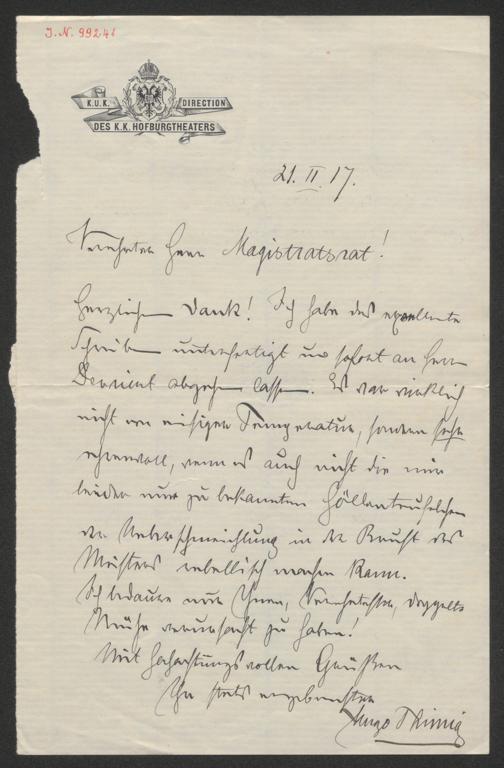 J. N. 99241
K.U.K. DIRECTION
DES K.K. HOFBURGTHEATERS
21. II. 17.
Verehrter Herr Magistratsrat!
Herzlichen Dank! Ich habe das exzellente
Schreiben unterfertigt und sofort an Herrn
Devrient abgehen lassen. Es war wirklich
nicht von eisiger Temperatur, sondern sehr
ehrenvoll, wenn es auch nicht die mir
leider nur zu bekannten Höllenteufelchen
der Ueberschmeichlung in der Brust des
Meisters rebellisch machen kann.
Ich bedaure nur Ihnen, Verehrtester, doppelte
Mühe verursacht zu haben!
Mit hochachtungsvollen Grüßen
Ihr stets ergebenster
Hugo Thimig